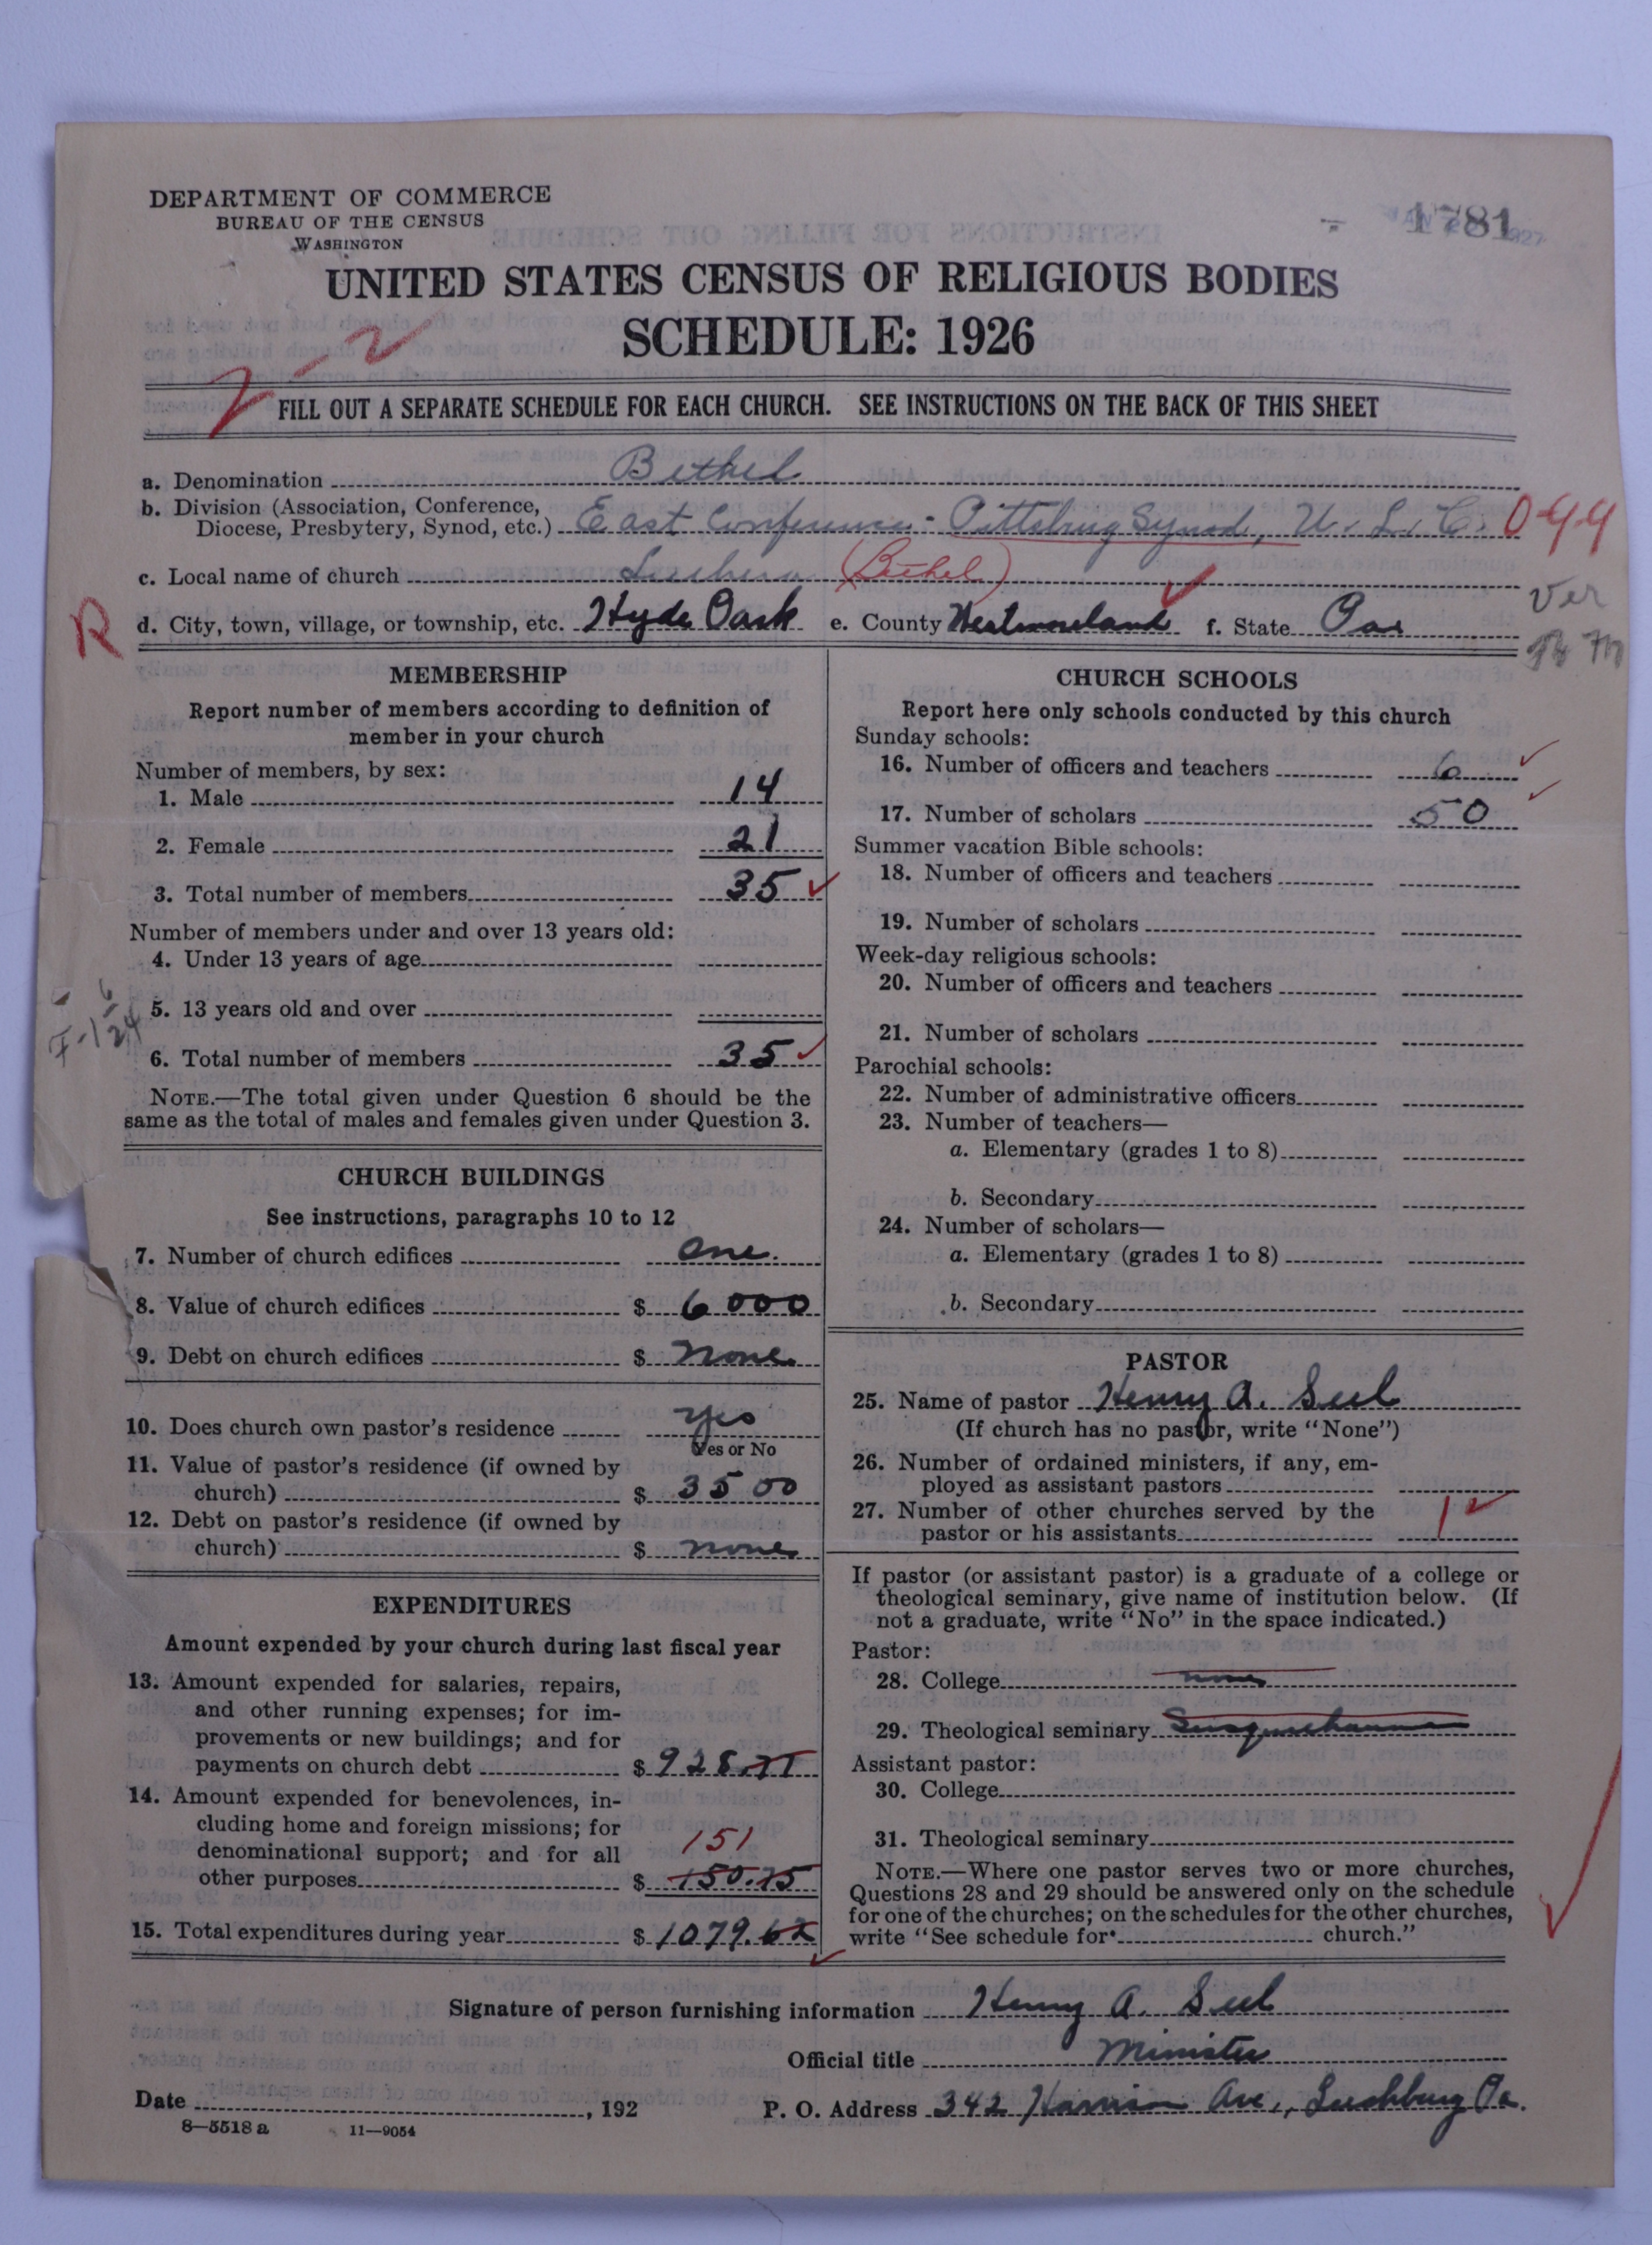 DEPARTMENT OF COMMERCE
BUREAU OF THE CENSUS
WASHINGTON
1781
UNITED STATES CENSUS OF RELIGIOUS BODIES
SCHEDULE: 1926
2-2
FILL OUT A SEPARATE SCHEDULE FOR EACH CHURCH. SEE INSTRUCTIONS ON THE BACK OF THIS SHEET
a. Denomination Bethel
b. Division (Association, Conference,
Diocese, Presbytery, Synod, etc.) East Conference - Pittsburg Synod, U. L. C. 0-99
c. Local name of church Luthern (Bethel)
R d. City, town, village, or township, etc. Hyde Park e. County Westmoreland f. State Pa.
Ver
MEMBERSHIP
Report number of members according to definition of
member in your church
Number of members, by sex:
1. Male 14
2. Female 21
3. Total number of members 35
Number of members under and over 13 years old:
4. Under 13 years of age
5. 13 years old and over
6. Total number of members 35
NOTE.—The total given under Question 6 should be the
same as the total of males and females given under Question 3.
CHURCH BUILDINGS
See instructions, paragraphs 10 to 12
7. Number of church edifices One.
8. Value of church edifices $ 6000
9. Debt on church edifices $ none
10. Does church own pastor's residence yes
Yes or No
11. Value of pastor's residence (if owned by
church) $ 3500
12. Debt on pastor's residence (if owned by
church) $ none
EXPENDITURES
Amount expended by your church during last fiscal year
13. Amount expended for salaries, repairs,
and other running expenses; for im-
provements or new buildings; and for
payments on church debt $ 928.77
14. Amount expended for benevolences, in-
cluding home and foreign missions; for
denominational support; and for all 151
other purposes $ 150.75
15. Total expenditures during year $ 1079.62
CHURCH SCHOOLS
Report here only schools conducted by this church
Sunday schools:
16. Number of officers and teachers 6
17. Number of scholars 50
Summer vacation Bible schools:
18. Number of officers and teachers
19. Number of scholars
Week-day religious schools:
20. Number of officers and teachers
21. Number of scholars
Parochial schools:
22. Number of administrative officers
23. Number of teachers—
a. Elementary (grades 1 to 8)
b. Secondary
24. Number of scholars—
a. Elementary (grades 1 to 8)
b. Secondary
PASTOR
25. Name of pastor Henry A. Seel
(If church has no pastor, write "None")
26. Number of ordained ministers, if any, em-
ployed as assistant pastors
27. Number of other churches served by the
pastor or his assistants 1
If pastor (or assistant pastor) is a graduate of a college or
theological seminary, give name of institution below. (If
not a graduate, write "No" in the space indicated.)
Pastor:
28. College none
29. Theological seminary Susquehanna
Assistant pastor:
30. College
31. Theological seminary
NOTE.—Where one pastor serves two or more churches,
Questions 28 and 29 should be answered only on the schedule
for one of the churches; on the schedules for the other churches,
write "See schedule for church."
Signature of person furnishing information Henry A. Seel
Official title Minister
Date , 192
P. O. Address 342 Harrison Ave., Leechburg Pa.
8—5518a 11—9054